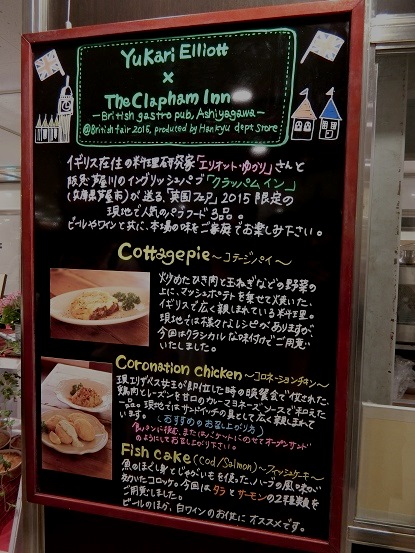 Yukari Elliott
×
The Clapham Inn
—British gastro pub, Ashiyagawa—
@British fair 2015, produced by Hankyu dept store
イギリス在住の料理研究家「エリオット・ゆかり」さんと
阪急芦屋川のイングリッシュパブ「クラッパムイン」
(兵庫県芦屋市)が送る、「英国フェア」2015限定の
現地で人気のパブフード3品。
ビールやワインと共に、本場の味をご家庭でお楽しみ下さい。
Cottagepie～コテージパイ～
炒めたひき肉と玉ねぎなどの野菜の
上に、マッシュポテトを乗せて焼いた、
イギリスで広く親しまれている料理。
現地では様々なレシピがありますが、
今回はクラシカルな味付けでご用意
いたしました。
Coronation chicken～コロネーションチキン～
現エリザベス女王が即位した時の晩餐会で使われた、
鶏肉とレーズンを甘口のカレーマヨネーズソースで和えた
一品。現地ではサンドイッチの具として広く親しまれて
います。(おすすめのお召し上がり方)
食パンに挟む、またはバゲットにのせてオープンサンド
のようにしてお召し上がり下さい。
Fish cake(Cod/Salmon)～フィッシュケーキ～
魚のほぐし身とじゃがいもを使った、ハーブの風味が
効いたコロッケ。今回はタラとサーモンの2種類を
ご用意しました。
ビールのほか、白ワインのお供にオススメです。